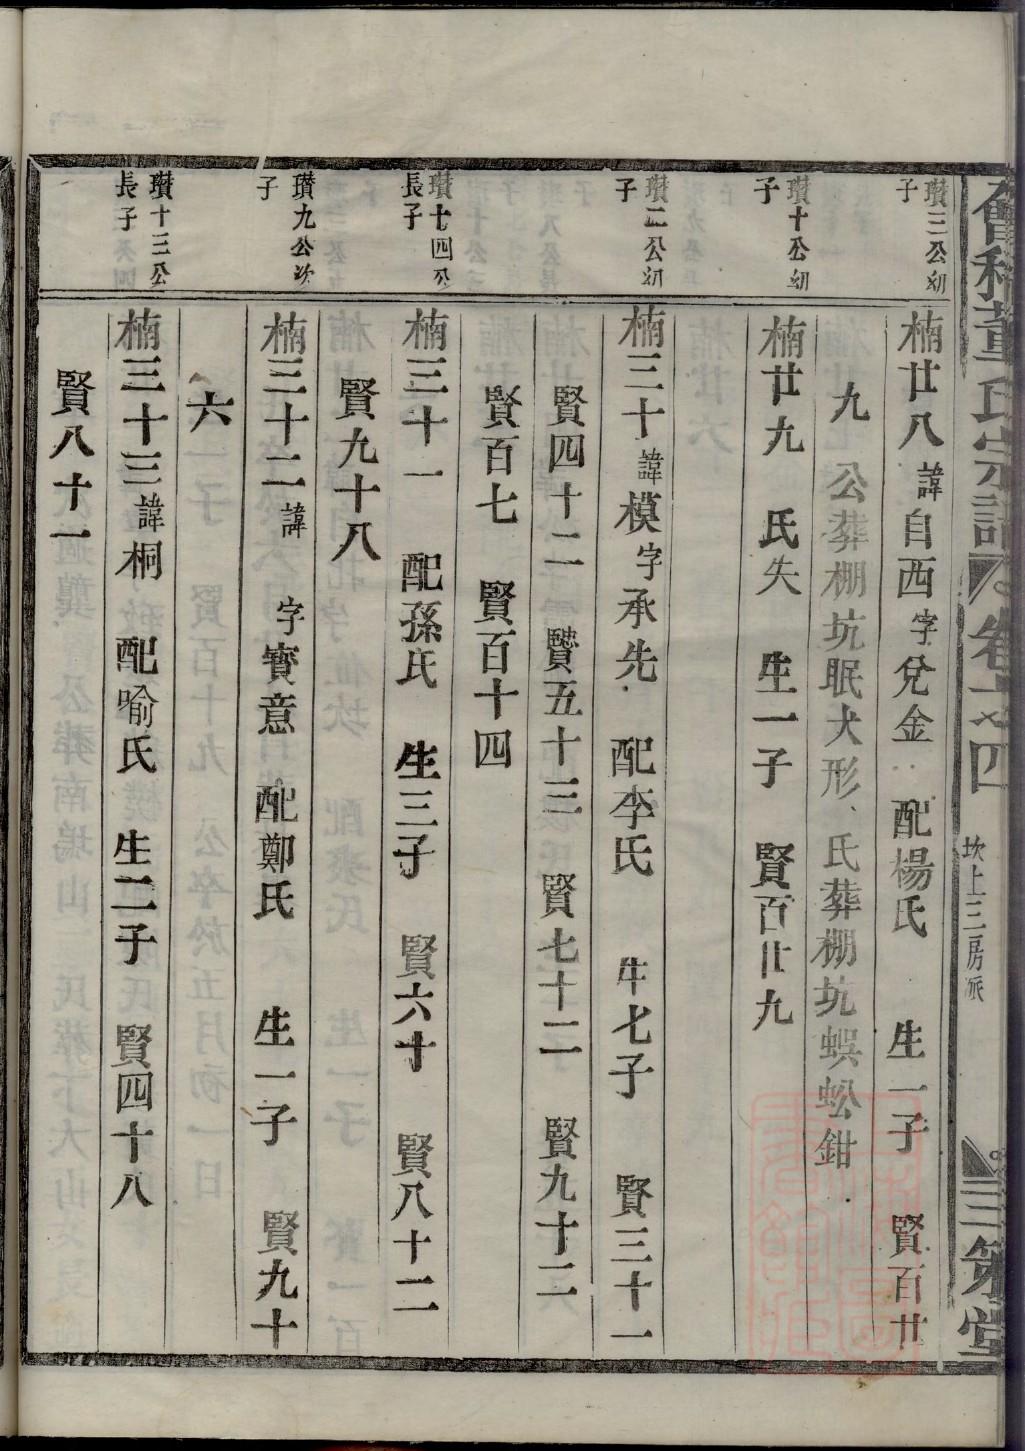 會稽董氏宗譜
卷之四
坎上三房派
三策堂
瓚三公幼子
楠廿八諱自西字兌金 配楊氏 生一子 賢百廿
九 公葬棚坑眠犬形 氏葬棚坑蜈蚣鉗
瓚十公幼子
楠廿九 氏失 生一子 賢百廿九
瓚二公幼子
楠三十諱模字承先 配李氏 生七子 賢三十一
賢四十二 賢五十三 賢七十二 賢九十二
賢百七 賢百十四
瓚十四公長子
楠三十一 配孫氏 生三子 賢六十 賢八十二
賢九十八
瓚九公次子
楠三十二諱 字寳意 配鄭氏 生一子 賢九十
六
瓚十三公長子
楠三十三諱桐 配喻氏 生二子 賢四十八
賢八十一